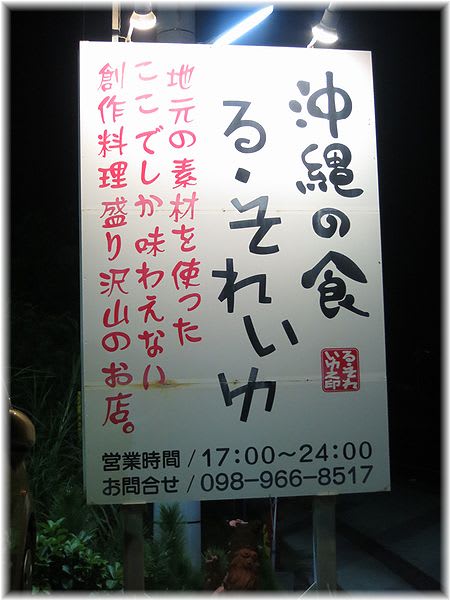 沖縄の食
る・それいゆ
るそれ
いゆ之印
地元の素材を使った
ここでしか味わえない
創作料理盛り沢山のお店。
営業時間/17:00～24:00
お問合せ/098-966-8517